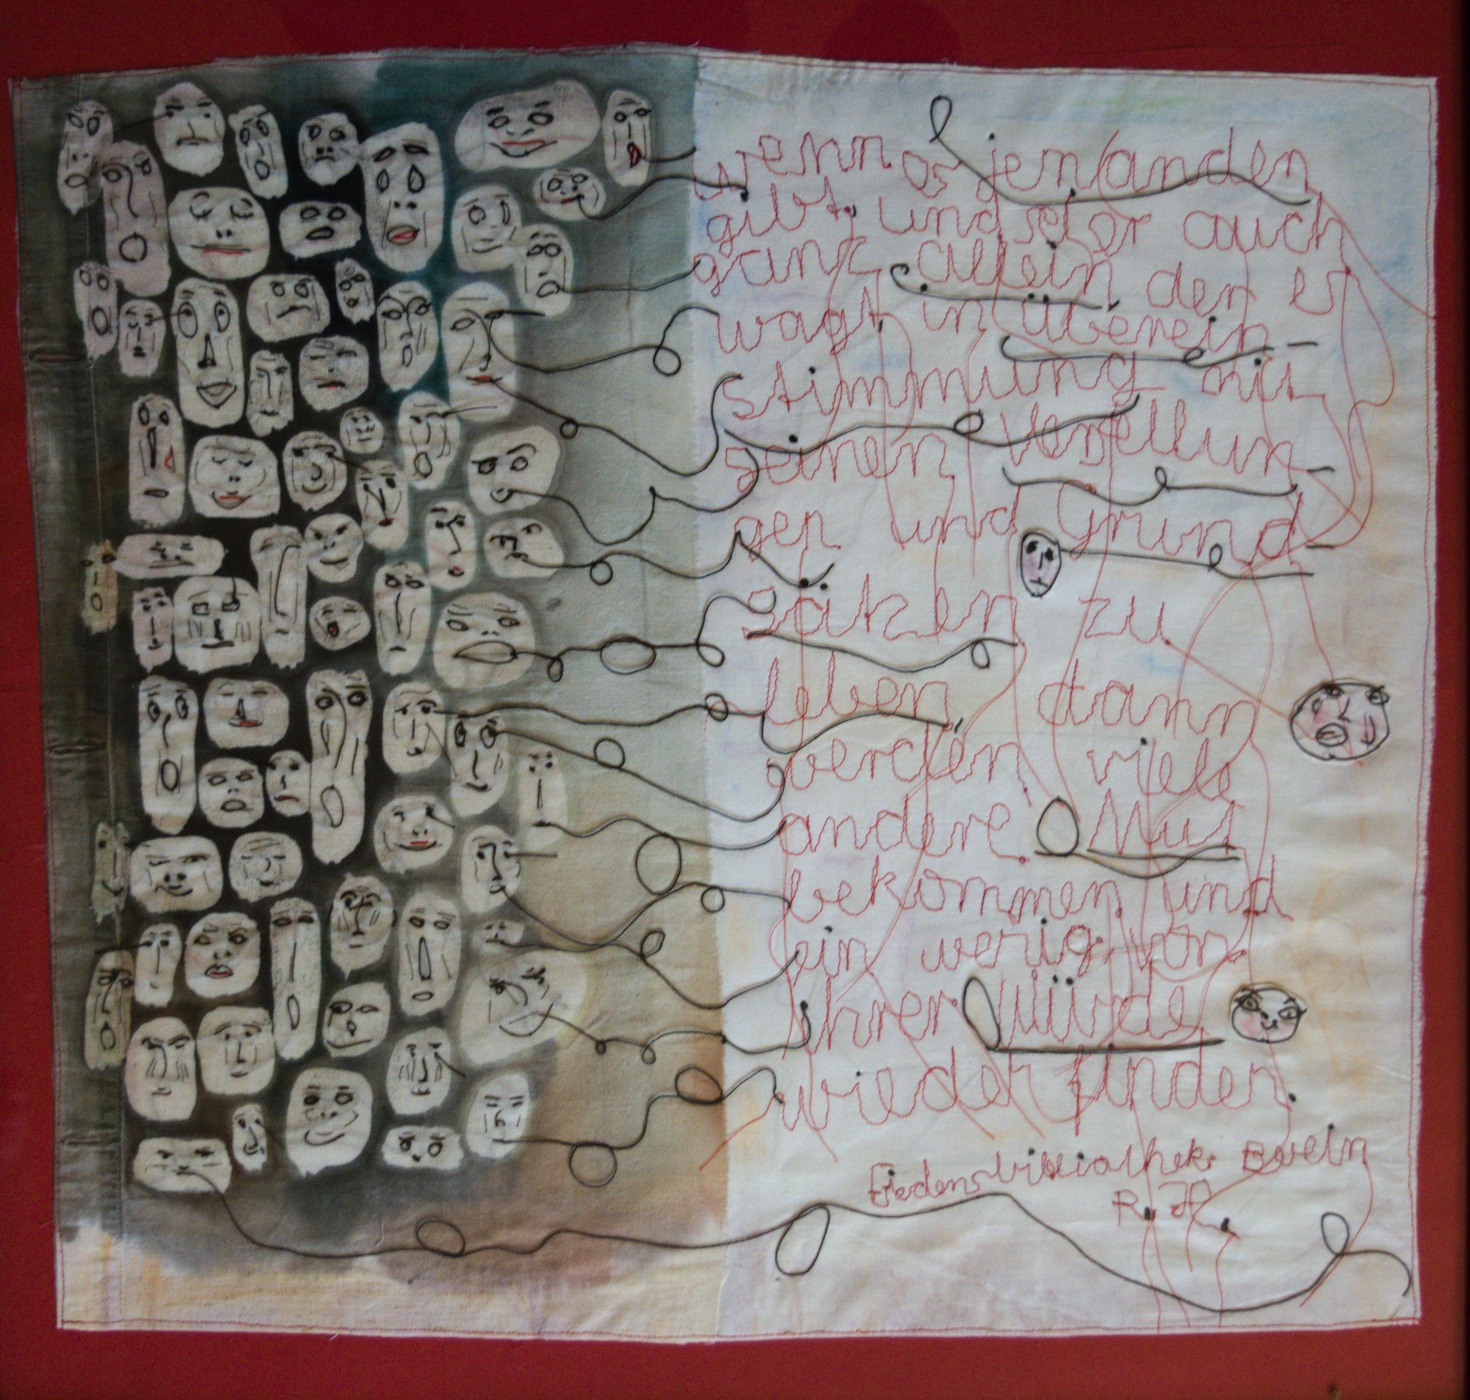 wenn es jemanden
gibt, und sei er auch
ganz allein der es
wagt in überein
stimmung mit
seinen Vorstellun
gen und Grund
sätzen zu
leben dann
werden viele
andere Mut
bekommen und
ein wenig von
ihrer Würde
wieder finden.
Friedensbibliothek Berlin